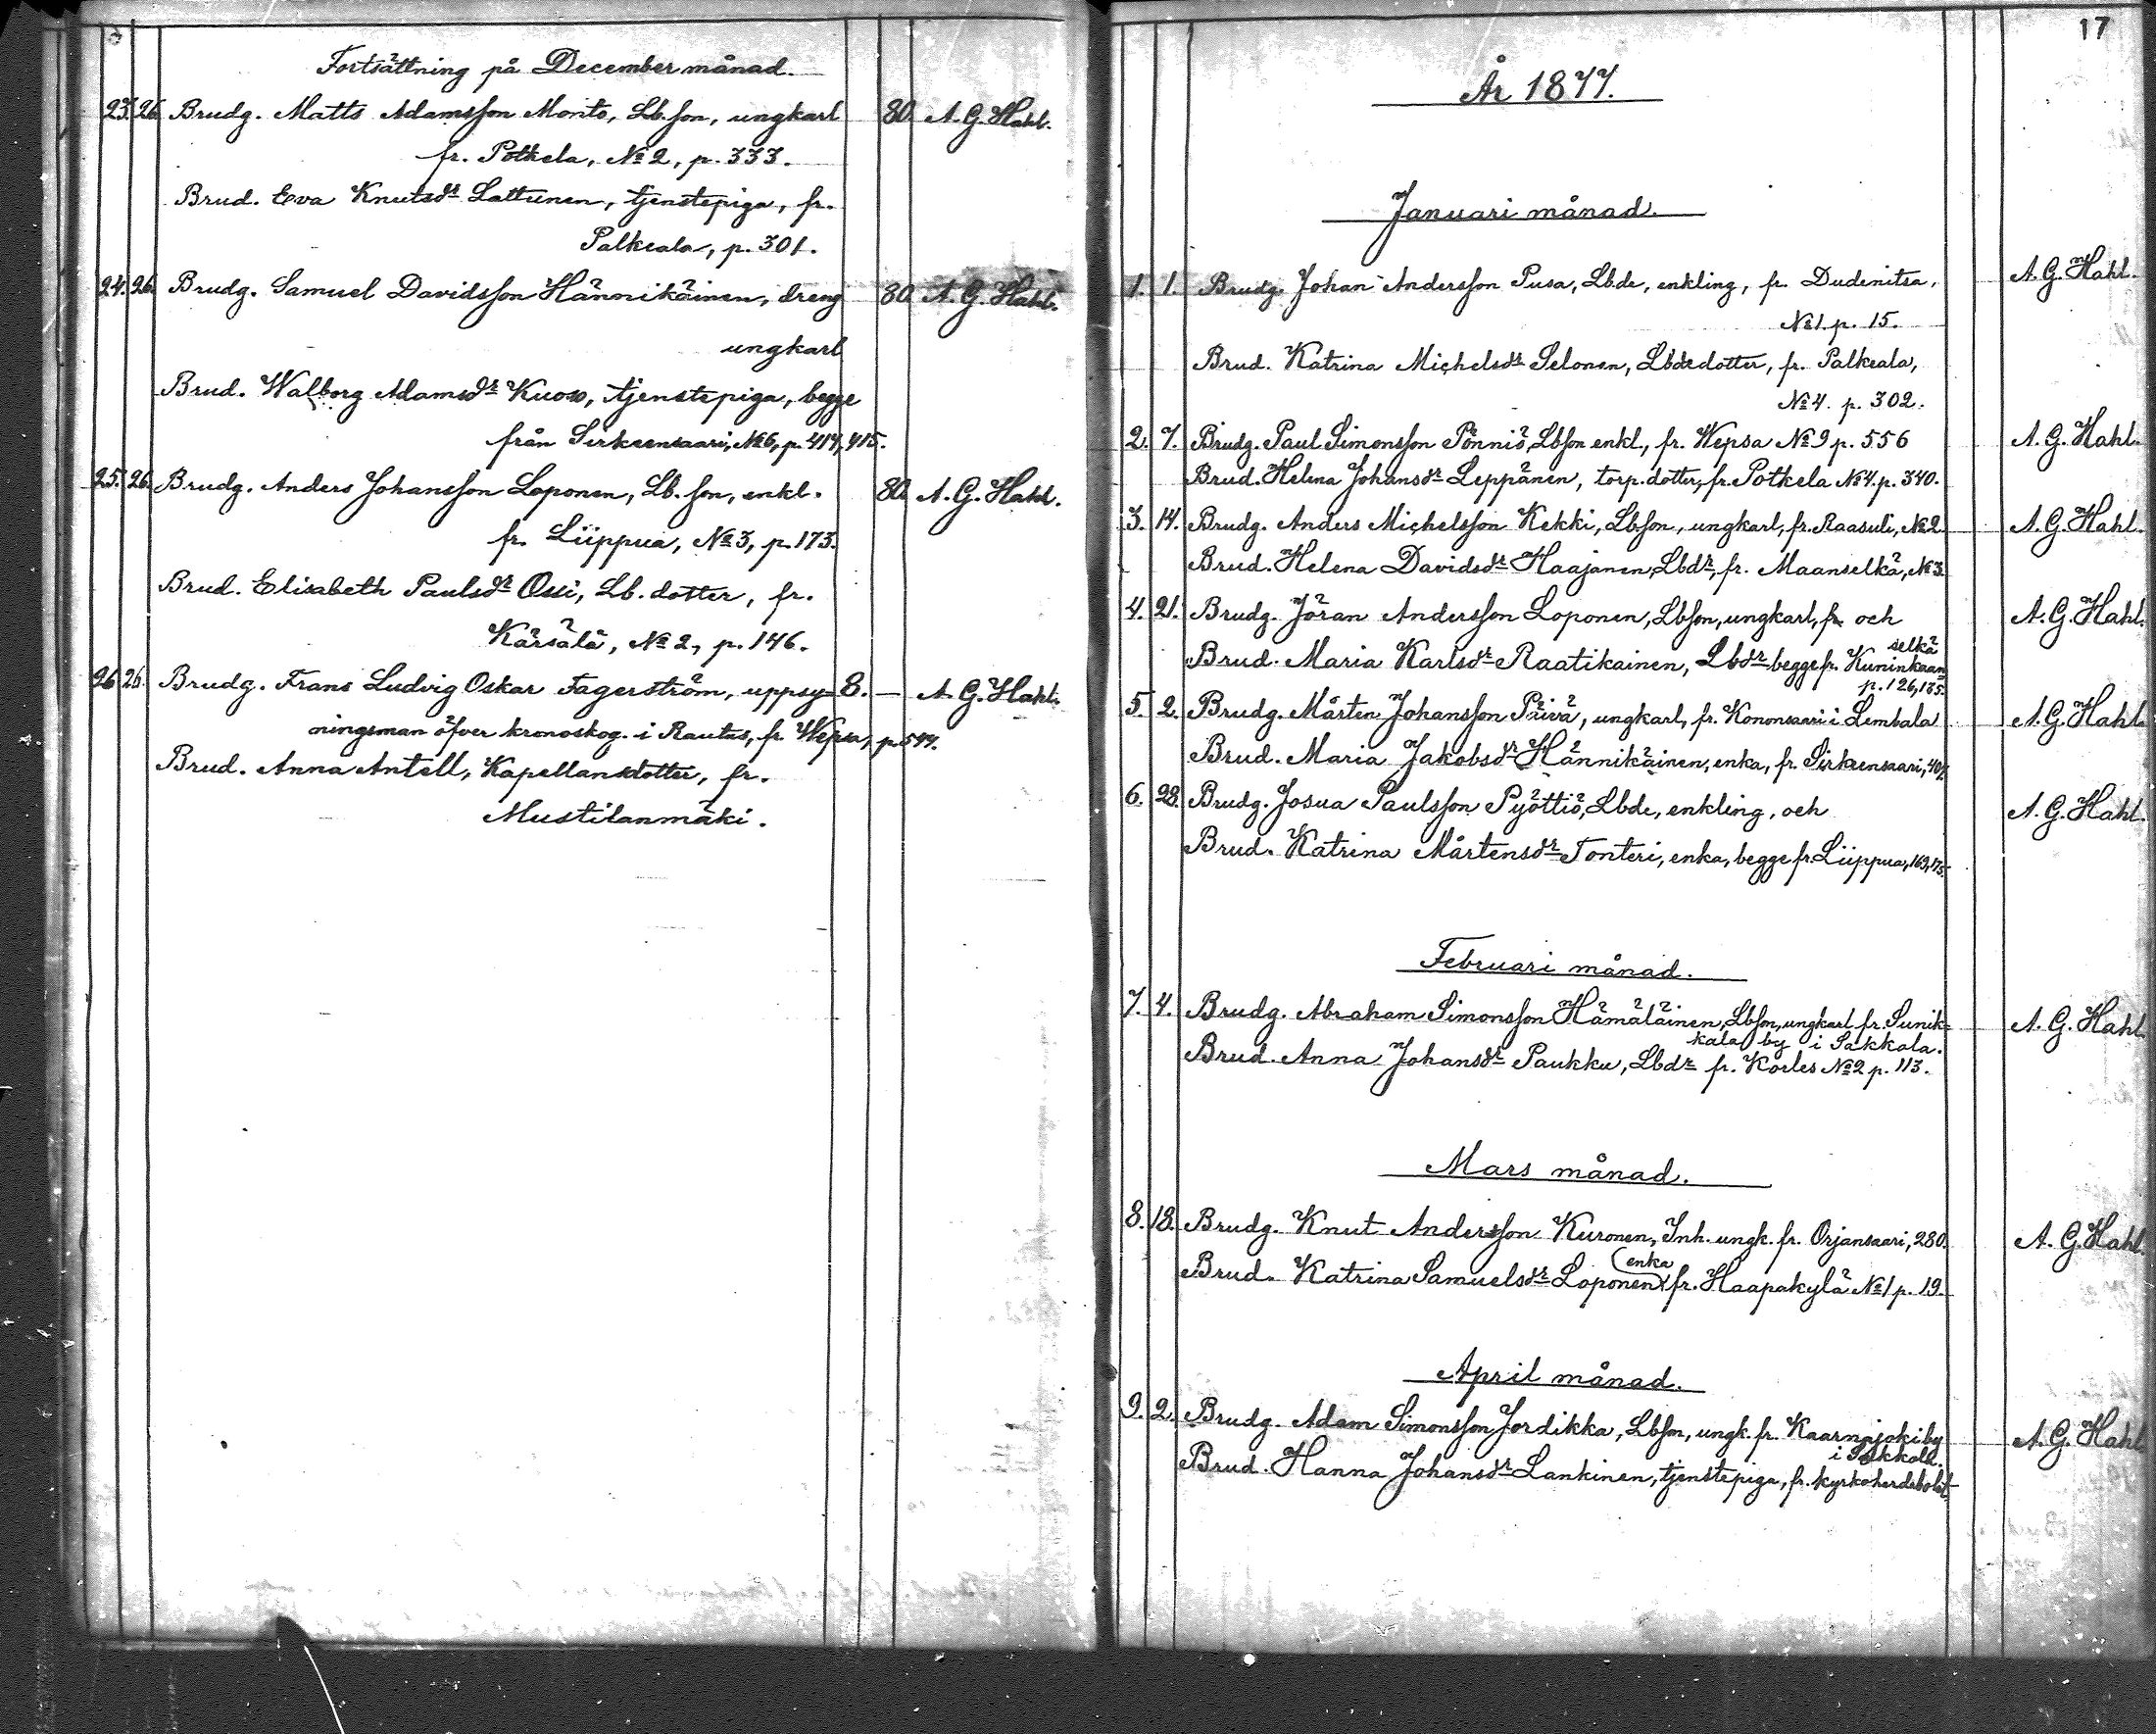 Fortsättning på December månad.
23. 26. Brudg. Matts Adamsson Monto, Lb. son, ungkarl 80 A. G. Hahl.
fr. Potkela, № 2, p. 333.
Brud. Eva Knutsdr Lattunen, tjenstepiga, fr.
Palkeala, p. 301.
24. 26. Brudg. Samuel Davidsson Hännikäinen, dreng 80. A. G. Hahl.
ungkarl
Brud. Walborg Adamsdr Kuosa, tjenstepiga, begge
från Sirkeensaari, № 6, p. 414, 415.
25. 26. Brudg. Anders Johansson Loponen, Lb. son, enkl. 80. A. G. Hahl.
fr. Liippua, № 3, p. 173.
Brud. Elisabeth Paulsdr Ossi, Lb. dotter, fr.
Kärsälä, № 2, p. 146.
26. 26. Brudg. Frans Ludvig Oskar Fagerström, uppsy- 8. — A. G. Hahl.
ningsman öfver kronoskog. i Rautus, fr. Wepsa, p. 544.
Brud. Anna Antell, Kapellansdotter, fr.
Mustilanmäki.
17
År 1877.
Januari månad.
1. 1. Brudg. Johan Andersson Pusa, Lbde, enkling, fr. Dudenitsa, A. G. Hahl.
№ 1. p. 15.
Brud. Katrina Michelsdr Selonen, Lbdedotter, fr. Palkeala,
№ 4. p. 302.
2. 7. Brudg. Paul Simonsson Pönniö, Lbson enkl., fr. Wepsa № 9 p. 556 A. G. Hahl.
Brud. Helena Johansdr Leppänen, torp. dotter, fr. Potkela № 4. p. 340.
3. 14. Brudg. Anders Michelsson Kekki, Lbson, ungkarl, fr. Raasuli, № 2 A. G. Hahl.
Brud. Helena Davidsdr Haajanen, Lbdr, fr. Maanselkä, № 3.
4. 21. Brudg. Jöran Andersson Loponen, Lbson, ungkarl, fr och A. G. Hahl.
Brud. Maria Karlsdr Raatikainen, Lbdr begge fr. Kuninkaan
selkä
p. 126, 135.
5. 2. Brudg. Mårten Johansson Privä, ungkarl, fr. Kononsaari i Lembala A. G. Hahl.
Brud. Maria Jakobsdr Hännikäinen, enka, fr. Sirkeensaari,
6. 28. Brudg. Josua Paulsson Pyöttiö, Lbde, enkling, och A. G. Hahl.
Brud. Katrina Mårtensdr Tonteri, enka, begge fr. Liippua, 169, 175.
Februari månad.
7. 4. Brudg. Abraham Simonsson Hämäläinen, Lbson, ungkarl fr. Sunik- A. G. Hahl.
kala by i Sakkola.
Brud. Anna Johansdr Paukku, Lbdr fr. Korles № 2 p. 113.
Mars månad.
8. 18. Brudg. Knut Andersson Kuronen, Inh. ungk. fr. Orjansaari, 280. A. G. Hahl.
Brud. Katrina Samuelsdr Loponen enka fr. Haapakylä № 1 p. 19.
April månad.
9. 2. Brudg. Adam Simonsson Jordikka, Lbson, ungk. fr. Kaarnajoki by A. G. Hahl
i Sakkola.
Brud. Hanna Johansdr Lankinen, tjenstepiga, fr. kyrkoherdebolet.